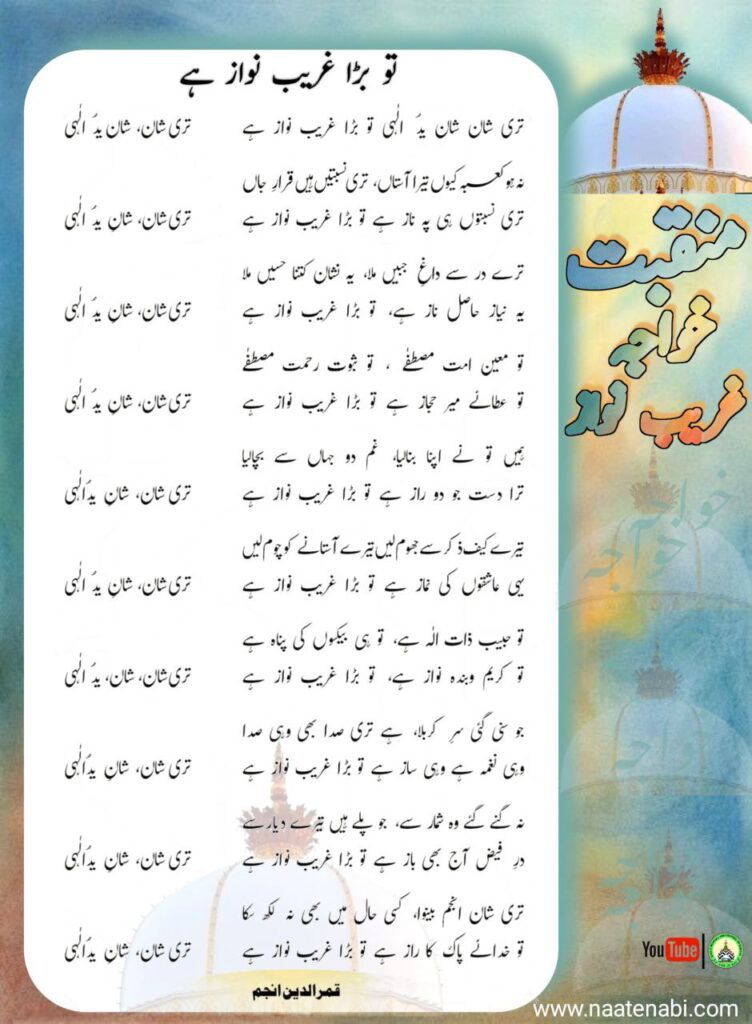 تو بڑا غریب نواز ہے
تری شان شان یدُ الٰہی تو بڑا غریب نواز ہے تری شان، شان یدُ الٰہی
نہ ہو کعبہ کیوں تیرا آستاں، تری نسبتیں ہیں قرارِ جاں
تری نسبتوں ہی پہ ناز ہے تو بڑا غریب نواز ہے تری شان، شانِ یدُ الٰہی
ترے در سے داغِ جبیں ملا، یہ نشان کتنا حسیں ملا
یہ نیاز حاصل ناز ہے، تو بڑا غریب نواز ہے تری شان، شانِ یدُ الٰہی
تو معین امت مصطفٰے ، تو ثبوت رحمت مصطفٰے
تو عطائے میر حجاز ہے تو بڑا غریب نواز ہے تری شان، شانِ یدُ الٰہی
ہمیں تو نے اپنا بنالیا، غم دو جہاں سے بچالیا
ترا دست جو دو راز ہے تو بڑا غریب نواز ہے تری شان، شانِ یدُالٰہی
تیرے کیف ذکر سے جھوم لیں تیرے آستانے کو چوم لیں
یہی عاشقوں کی نماز ہے تو بڑا غریب نواز ہے تری شان، شانِ یدُ الٰہی
تو حبیب ذات الٰہ ہے، تو ہی بیکسوں کی پناہ ہے
تو کریم وبندہ نواز ہے، تو بڑا غریب نواز ہے تری شان، شان، یدُ الٰہی
جو سنی گئی سرِ کربلا، ہے تری صدا بھی وہی صدا
وہی نغمہ ہے وہی ساز ہے تو بڑا غریب نواز ہے تری شان، شانِ یدُالٰہی
نہ گنے گئے وہ شمار سے، جو پلے ہیں تیرے دیار سے
درِ فیض آج بھی باز ہے تو بڑا غریب نواز ہے تری شان، شانِ یدُالٰہی
تری شان انجم بینوا، کسی حال میں بھی نہ لکھ سکا
تو خدائے پاک کا راز ہے تو بڑا غریب نواز ہے تری شان، شانِ یدُالٰہی
قمرالدین انجم
منقبت
خواجہ
غریب نواز
خواجہ
خواجہ
خواجہ
YouTube
www.naatenabi.com